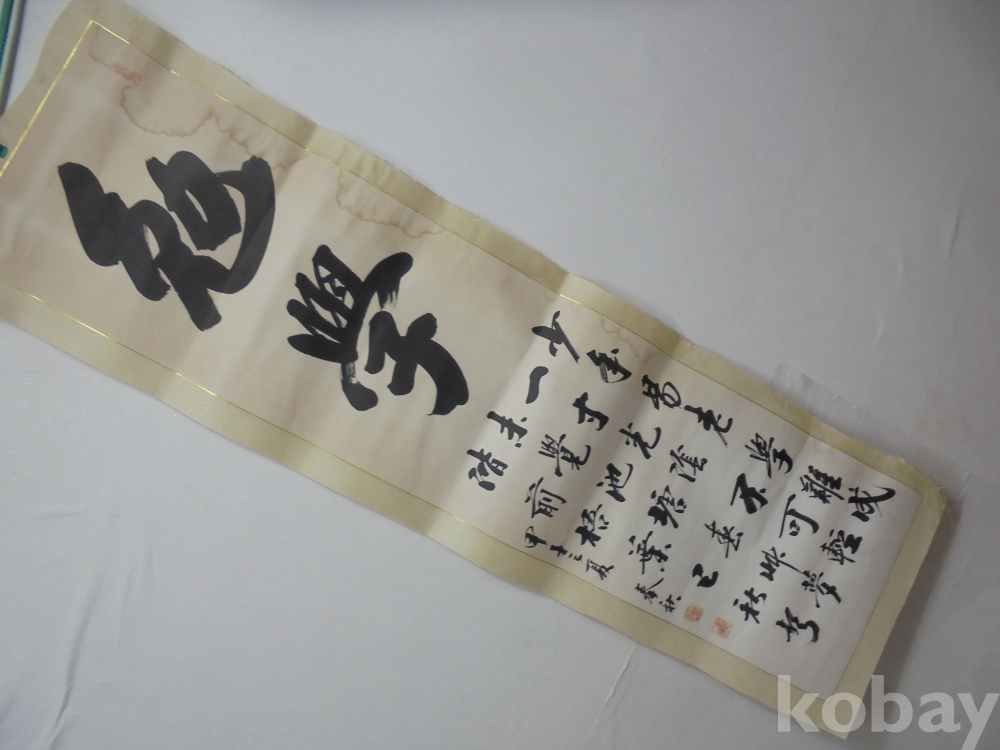 勉學
少年易老學難成
一寸光陰不可輕
未覺池塘春艸夢
階前梧葉已秋聲
夏
kobay